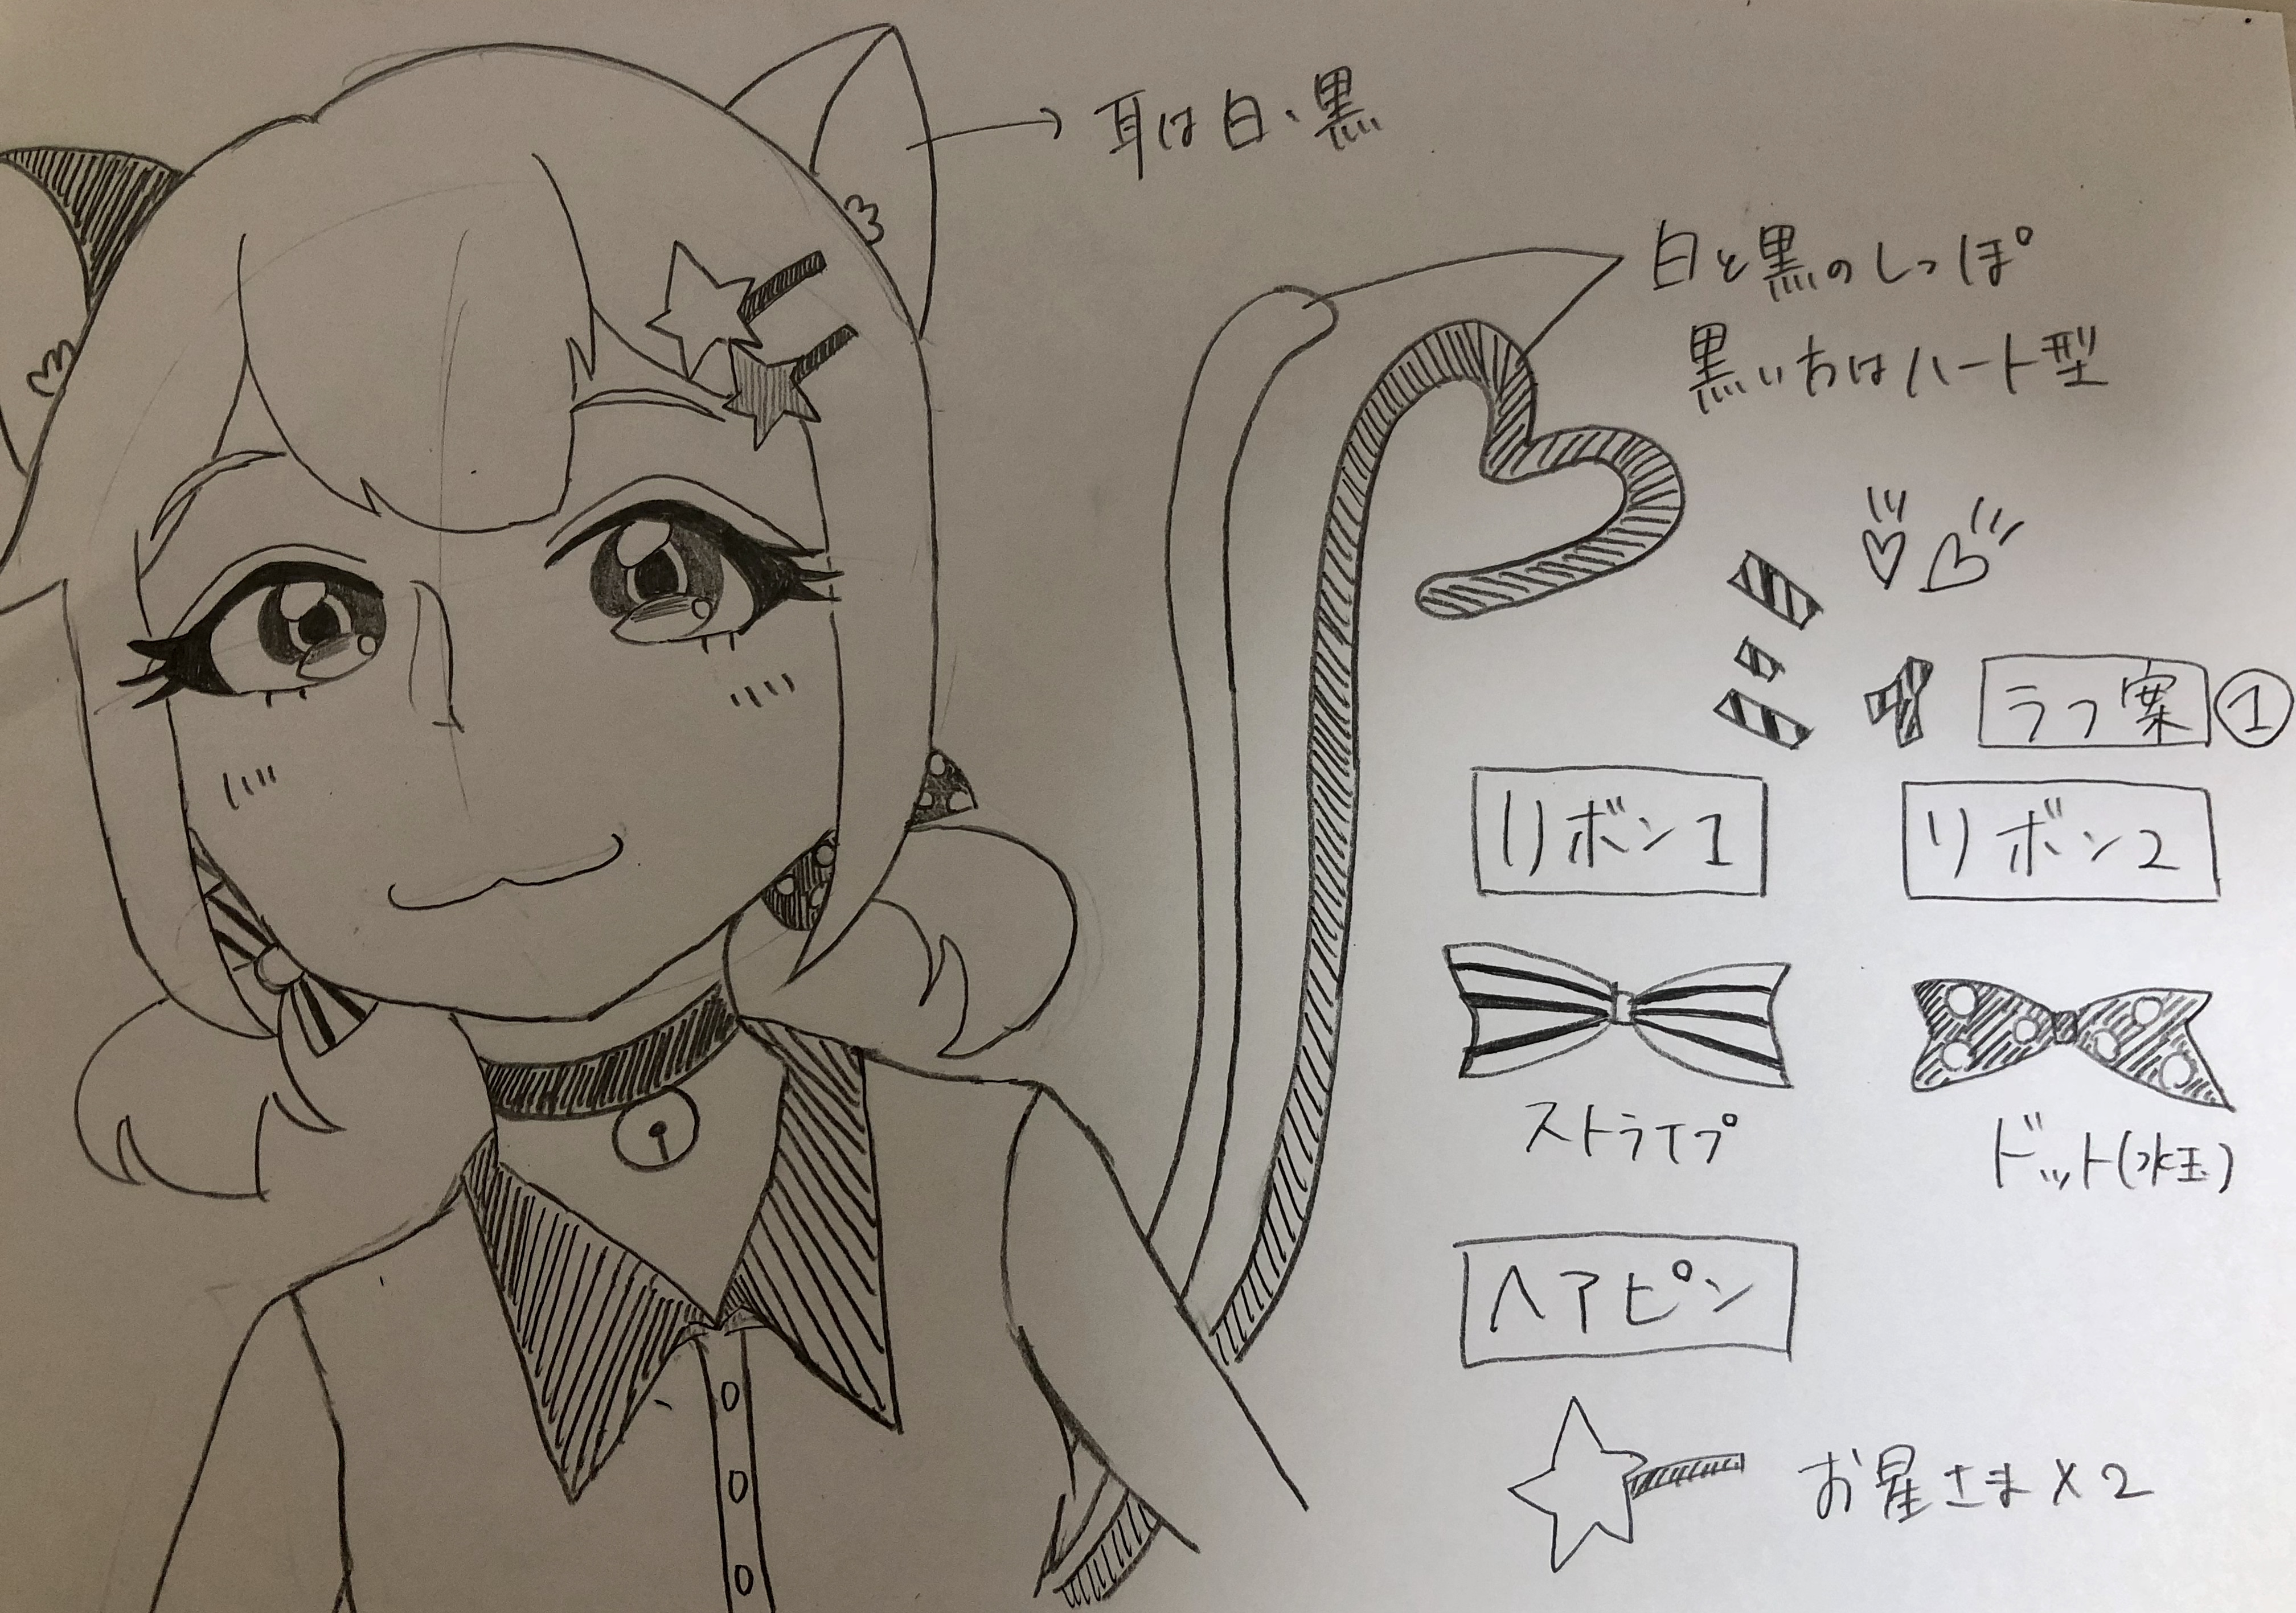 耳は白、黒
白と黒のしっぽ
黒い方はハート型
ラフ案 ①
リボン1
リボン2
ストライプ
ドット(水玉)
ヘアピン
お星さま×2